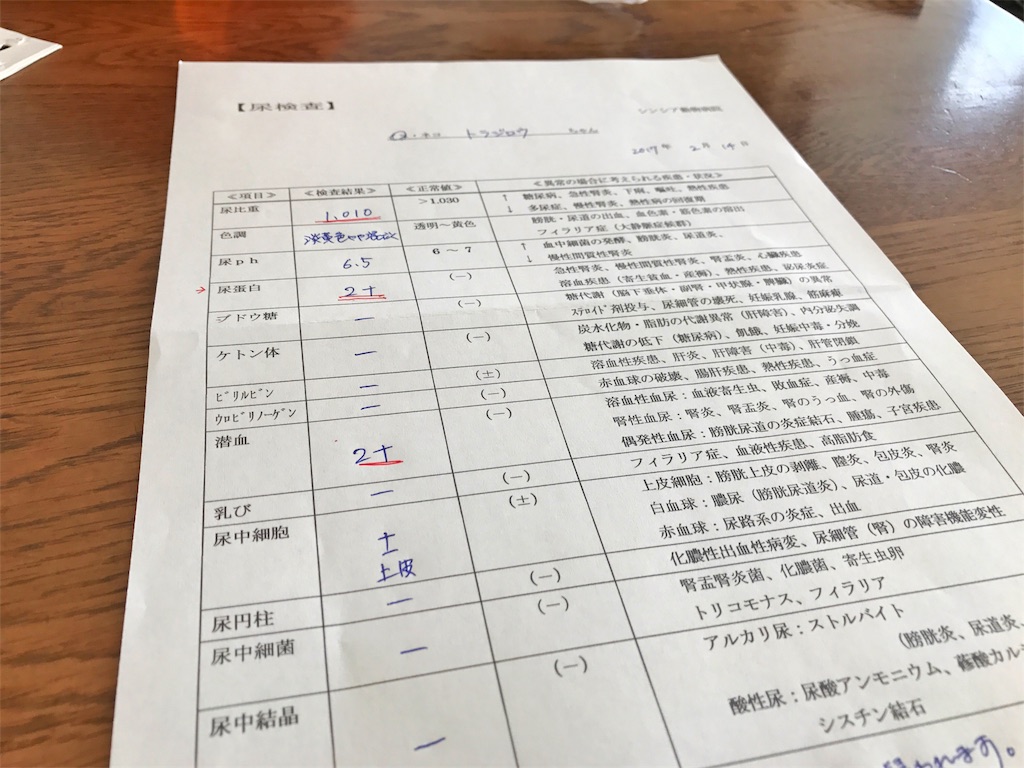 【尿検査】
シンシア動物病院
ネコ トラジロウ ちゃん
2017年 2月 14日
≪項目≫ ≪検査結果≫ ≪正常値≫ ≪異常の場合に考えられる疾患・状況≫
尿比重 1,010 >1.030 ↑ 糖尿病、急性腎炎、下痢、嘔吐、熱性疾患
↓ 多尿症、慢性腎炎、熱性病の回復期
色調 淡黄色やや 透明～黄色 膀胱・尿道の出血、血色素・筋色素の溶出
フィラリア症（大静脈症候群）
尿ph 6.5 6～7 ↑ 血中細菌の発酵、膀胱炎、尿道炎、
↓ 慢性間質性腎炎
→ 尿蛋白 2+ (－) 急性腎炎、慢性間質性腎炎、腎盂炎、心臓疾患
溶血疾患（寄生貧血・産褥）、熱性疾患、泌尿炎症
ブドウ糖 － (－) 糖代謝（脳下垂体・副腎・甲状腺・膵臓）の異常
ｽﾃﾛｲﾄﾞ剤投与、尿細管の壊死、妊娠乳腺、筋麻痺
ケトン体 － (－) 炭水化物・脂肪の代謝異常（肝障害）、内分泌失調
糖代謝の低下（糖尿病）、飢餓、妊娠中毒・分娩
ﾋﾞﾘﾙﾋﾞﾝ － (±) 溶血性疾患、肝炎、肝障害（中毒）、肝管閉鎖
ｳﾛﾋﾞﾘﾉｰｹﾞﾝ － (－) 赤血球の破壊、腸肝疾患、熱性疾患、うっ血症
潜血 2+ (－) 溶血性血尿：血液寄生虫、敗血症、産褥、中毒
腎性血尿：腎炎、腎盂炎、腎のうっ血、腎の外傷
偶発性血尿：膀胱尿道の炎症結石、腫瘍、子宮疾患
乳び － (－) フィラリア症、血液性疾患、高脂肪食
尿中細胞 + 上皮 (±) 上皮細胞：膀胱上皮の剥離、膣炎、包皮炎、腎炎
白血球：膿尿（膀胱尿道炎）、尿道・包皮の化膿
赤血球：尿路系の炎症、出血
尿円柱 － (－) 化膿性出血性病変、尿細管（腎）の障害機能変性
尿中細菌 － (－) 腎盂腎炎菌、化膿菌、寄生虫卵
トリコモナス、フィラリア
尿中結晶 － (－) アルカリ尿：ストルバイト
（膀胱炎、尿道炎、
酸性尿：尿酸アンモニウム、蓚酸カル
シスチン結石
ます。